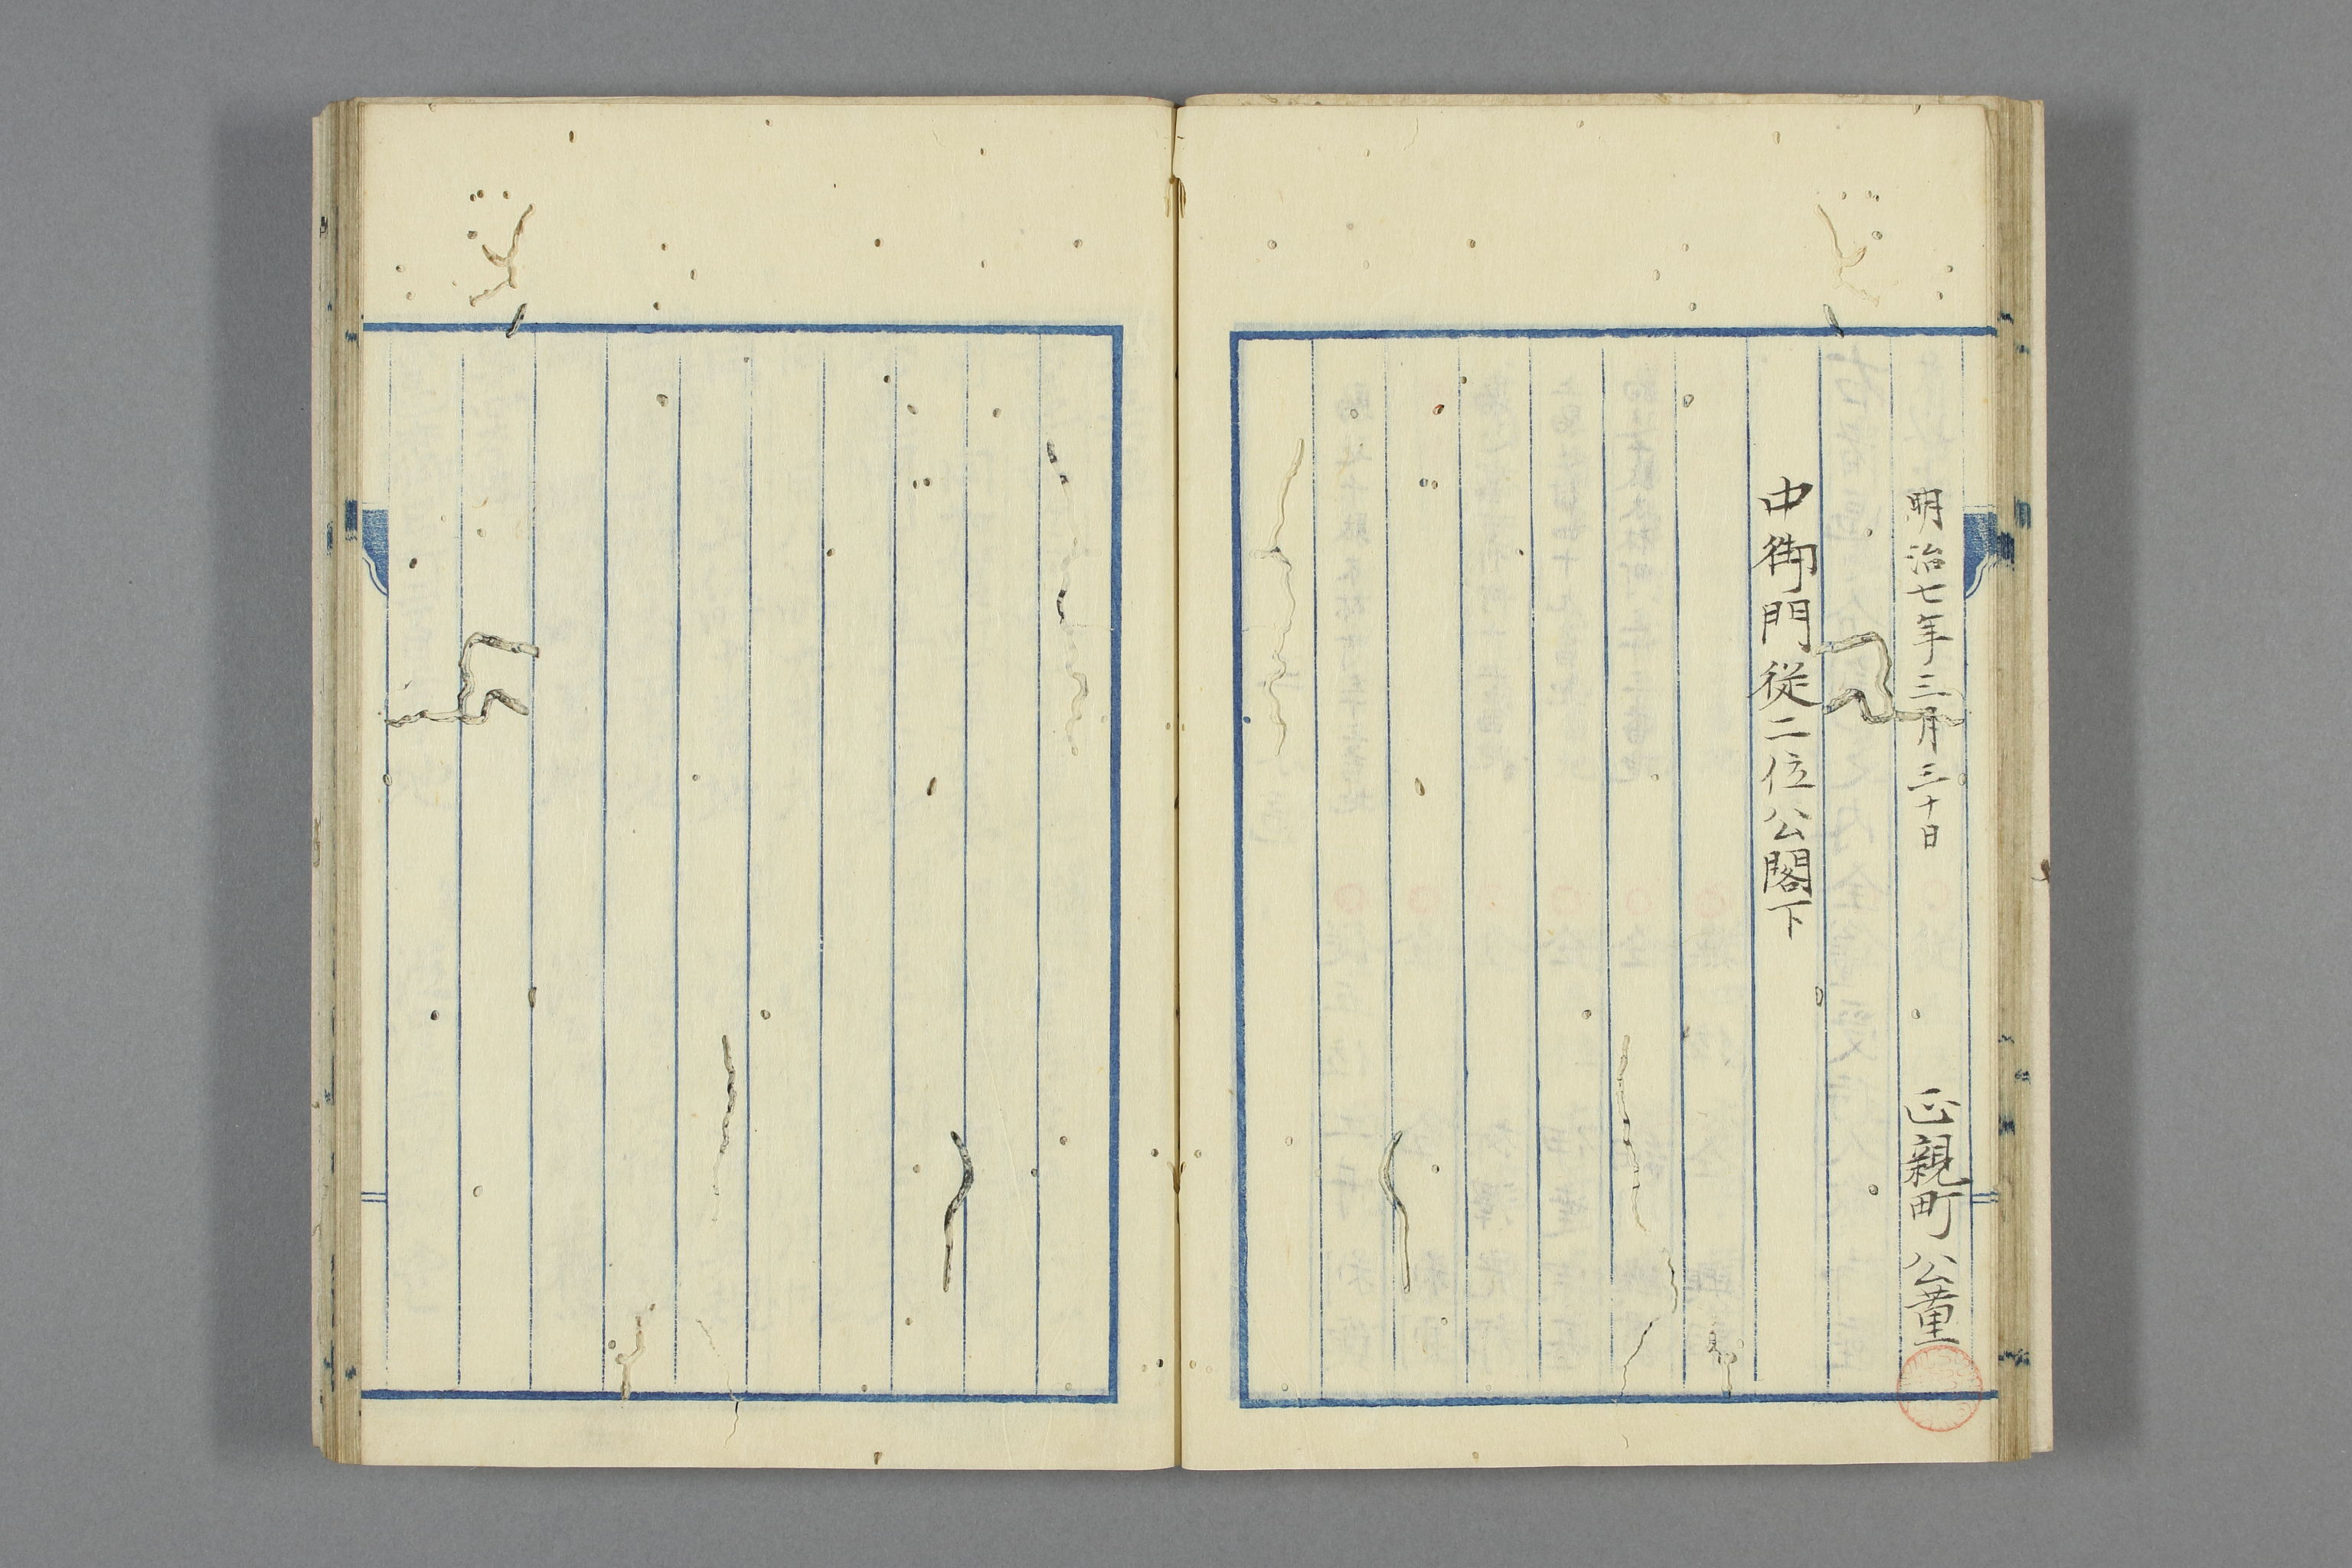 明治七年三月三十日　正親町公董
中御門従二位公閣下